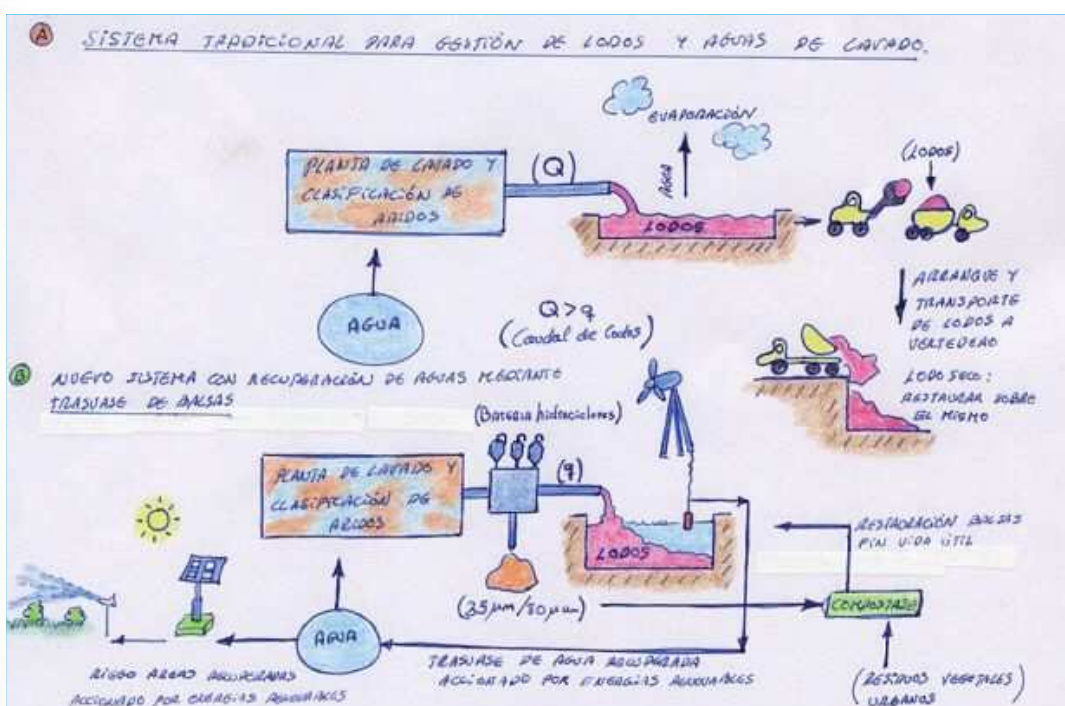 A SISTEMA TRADICIONAL PARA GESTIÓN DE LODOS Y AGUAS DE LAVADO.
EVAPORACIÓN
AGUA
(LODOS)
PLANTA DE LAVADO Y
CLASIFICACIÓN DE
ARIDOS
(Q)
LODOS
AGUA
ARRANQUE Y
TRANSPORTE
DE LODOS A
VERTEDERO
Q>q
(Caudal de Lodos)
LODO SECO:
RESTAURAR SOBRE
EL MISMO
B NUEVO SISTEMA CON RECUPERACIÓN DE AGUAS MEDIANTE
TRASVASE DE BALSAS
(Bateria hidrociclones)
PLANTA DE LAVADO Y
CLASIFICACIÓN DE
ARIDOS
(q)
LODOS
RESTAURACIÓN BALSAS
FIN VIDA ÚTIL
(25µm/80µm)
COMPOSTAJE
AGUA
TRASVASE DE AGUA RECUPERADA
ACCIONADO POR ENERGIAS RENOVABLES
RIEGO AREAS RECUPERADAS
ACCIONADO POR ENERGIAS RENOVABLES
(RESIDUOS VEGETALES)
URBANOS